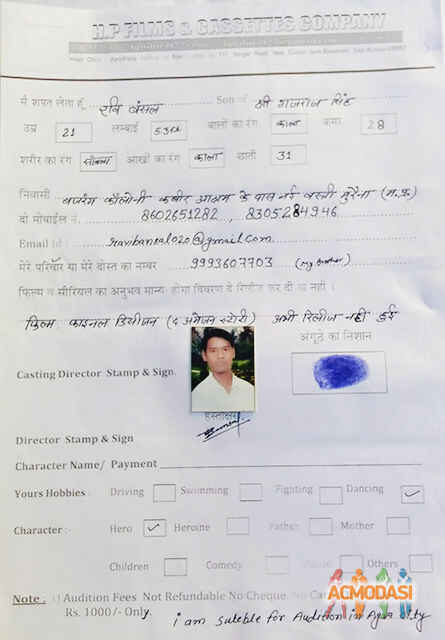 N.P FILMS & CASSETTES COMPANY
मैं शपत लेता हूँ रवि बंसल Son of श्री गजराज सिंह
उम्र 21 लम्बाई बालों का रंग काला कमर 28
शरीर का रंग आंखों का रंग काला छाती 31
निवासी बजरंग कॉलोनी कबीर आश्रम के पास नई बस्ती मुरैना (म.प्र.)
दो मोबाईल नं. 8602651282 , 8305284946
Email id : ravibansal020@gmail.com
मेरे परिवार या मेरे दोस्त का नम्बर 9993607703 (my brother)
फिल्म व सीरियल का अनुभव मान्य होगा विवरण दे रिलीज कर दी या नहीं ।
फिल्म फाइनल डिसीजन स्टोरी) अभी रिलीज नहीं हुई
अंगूठे का निशान
Casting Director Stamp & Sign.
हस्ताक्षर
Director Stamp & Sign
Character Name/ Payment
Yours Hobbies : Driving Swimming Fighting Dancing
Character : Hero Heroine Father Mother
Children Comedy Others
Note : 1) Audition Fees Not Refundable No Cheque. No
Rs. 1000/- Only.
ACMODASI
i am suteble for Audition in Agra city